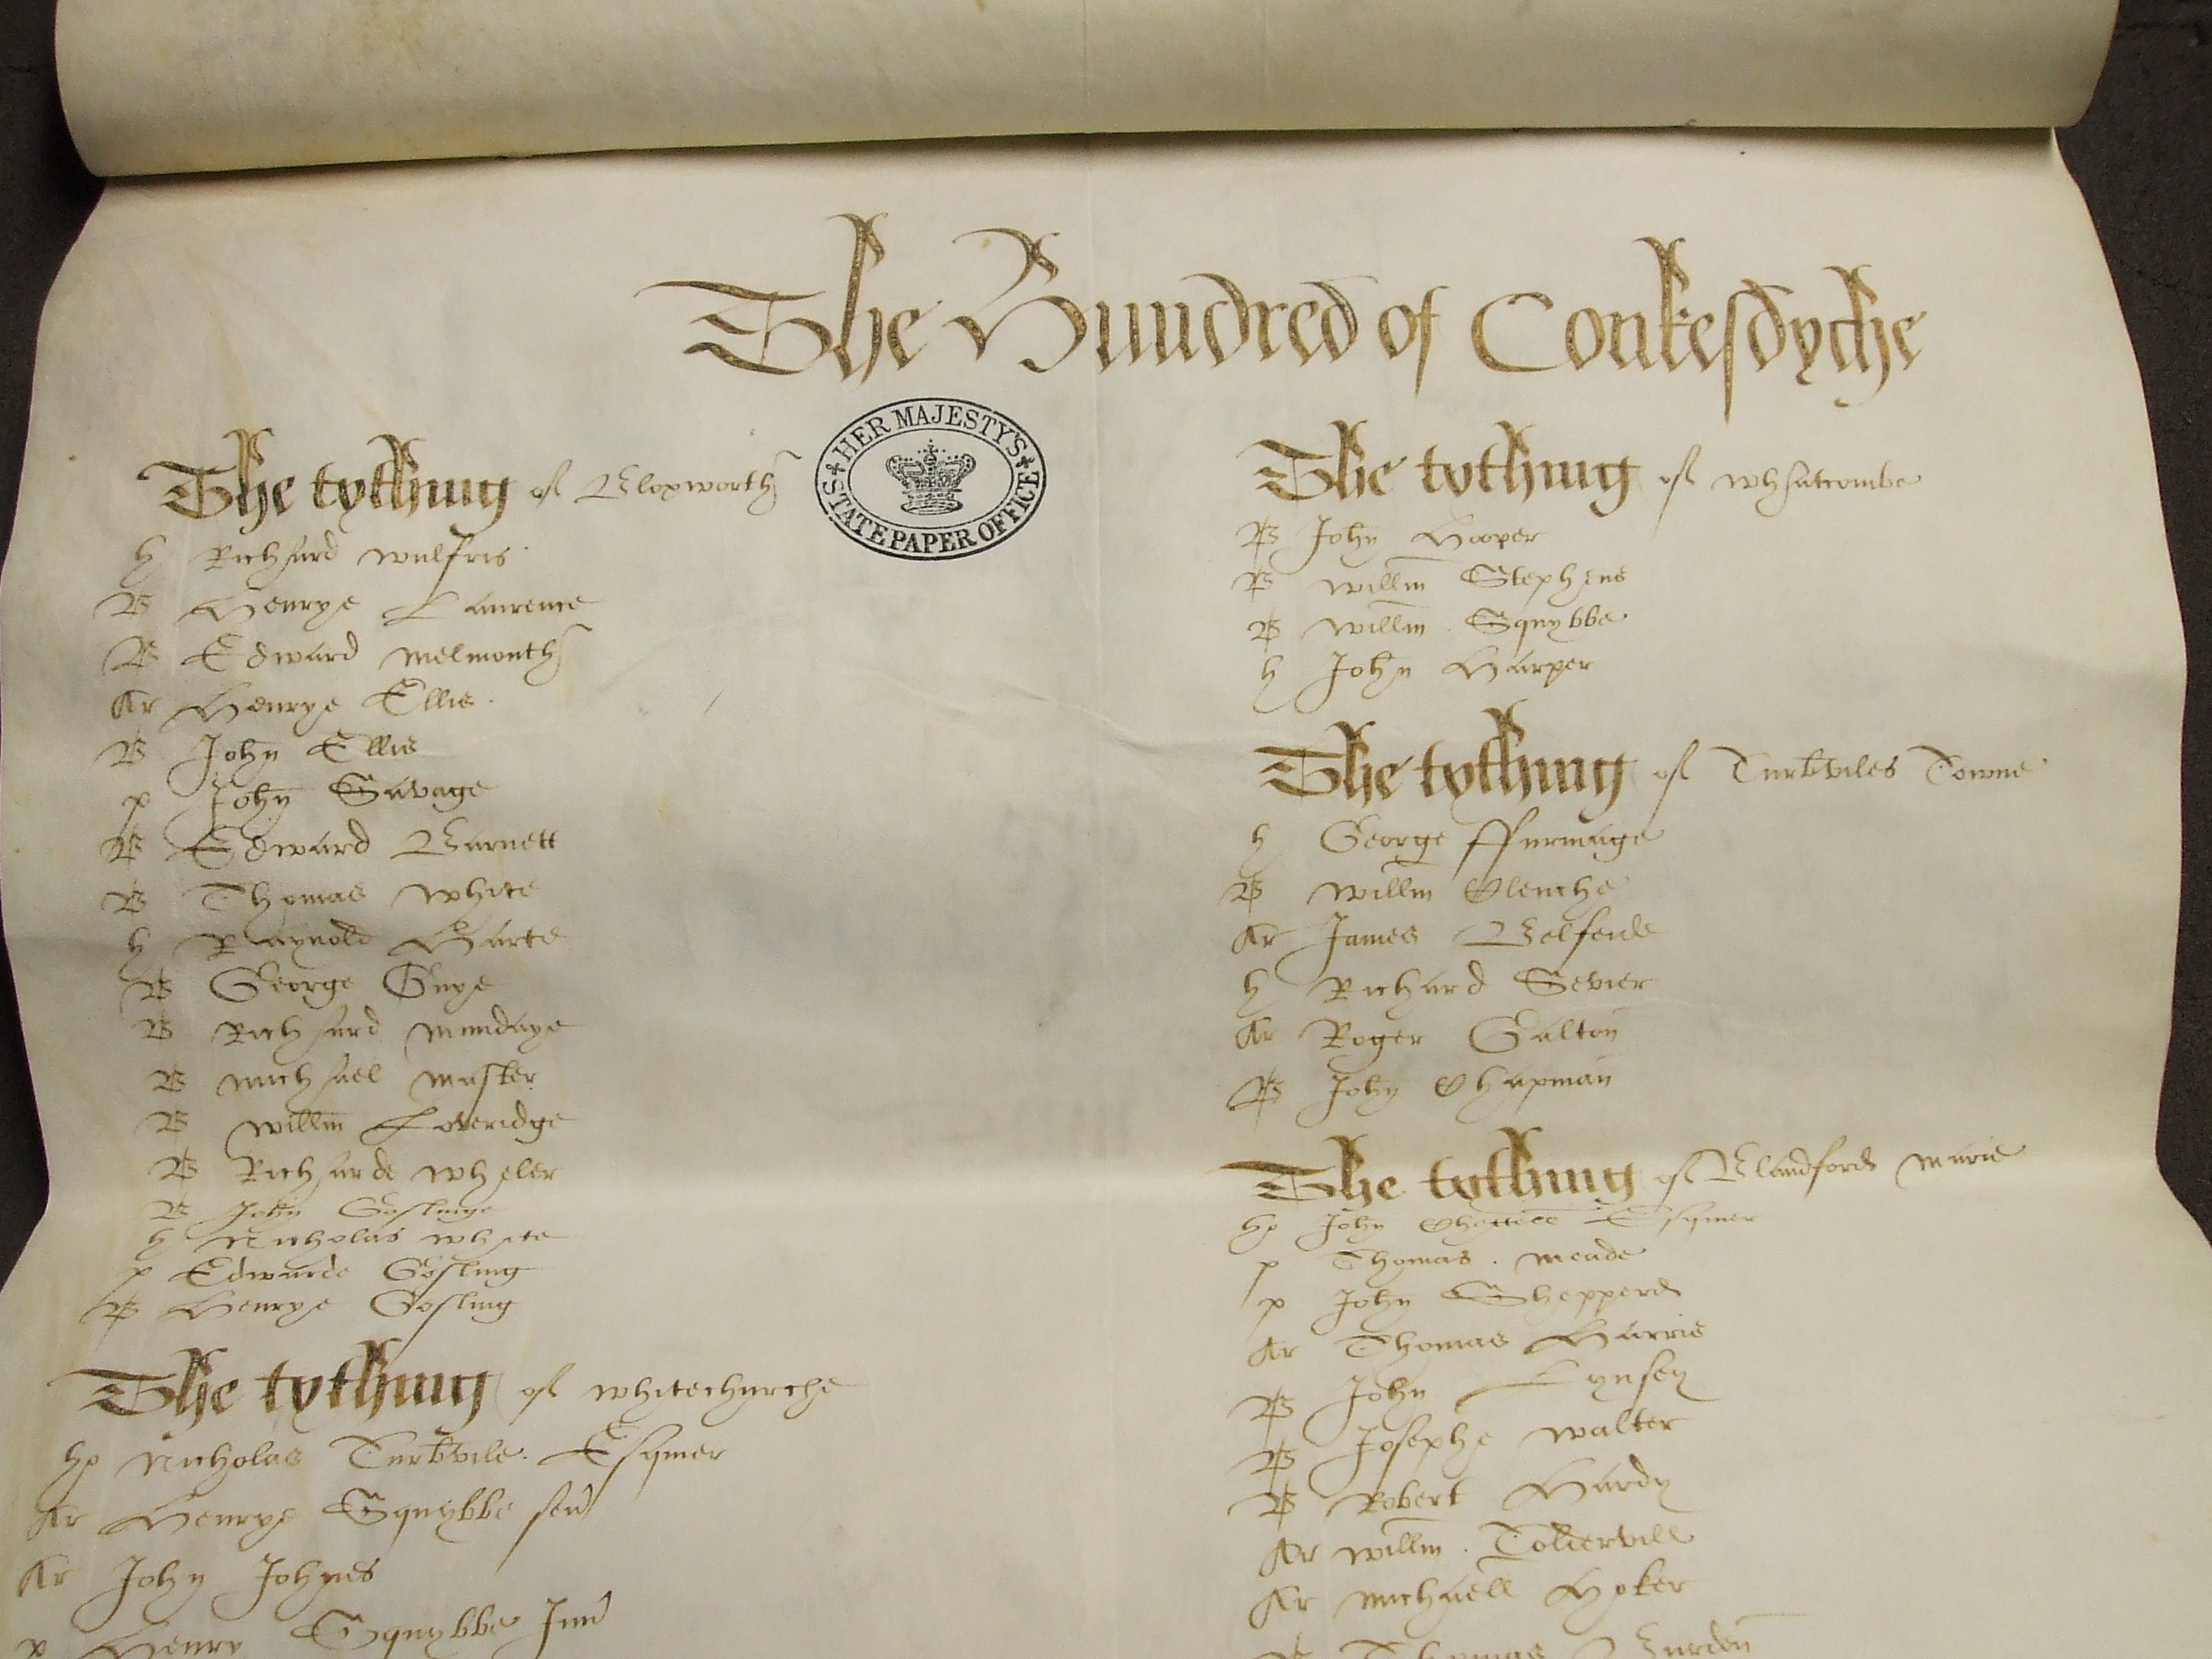 The Hundred of Conkesdyche
HER MAJESTY'S STATE PAPER OFFICE
The tything of Bloxworth
h Richard wulfris
B Henrye Laurence
B Edward Melmonth
Ar Henrye Ellis
B John Ellis
p John Savage
B Edward Barnett
B Thomas White
h Raynold Harte
B George Guye
B Richard Mundaye
B Michael Master
B Willm Loveridge
B Richarde Wheler
B John Goslinge
h Nicholas White
p Edwarde Gosling
B Henrye Gosling
The tything of whitechurche
hp Nicholas Turbvile Esqmer
Ar Henrye Squybbe sen
Ar John Johnes
p Henry Squybbe Jun
The tything of Whatcombe
B John Hooper
B Willm Stephens
B Willm Squybbe
h John Harper
The tything of Turbviles Towne
h George ffurmage
B Willm Clenche
Ar James Belfeilde
h Richard Sevier
Ar Roger Galton
B John Chapman
The tything of Blandford Marie
hp John Chettell Esqmer
p Thomas Meade
p John Shepperd
Ar Thomas Harris
B John Lynsey
B Josephe Walter
B Robert Hardy
Ar Willm Tollervill
Ar Michaell Hoker
Thomas Burden